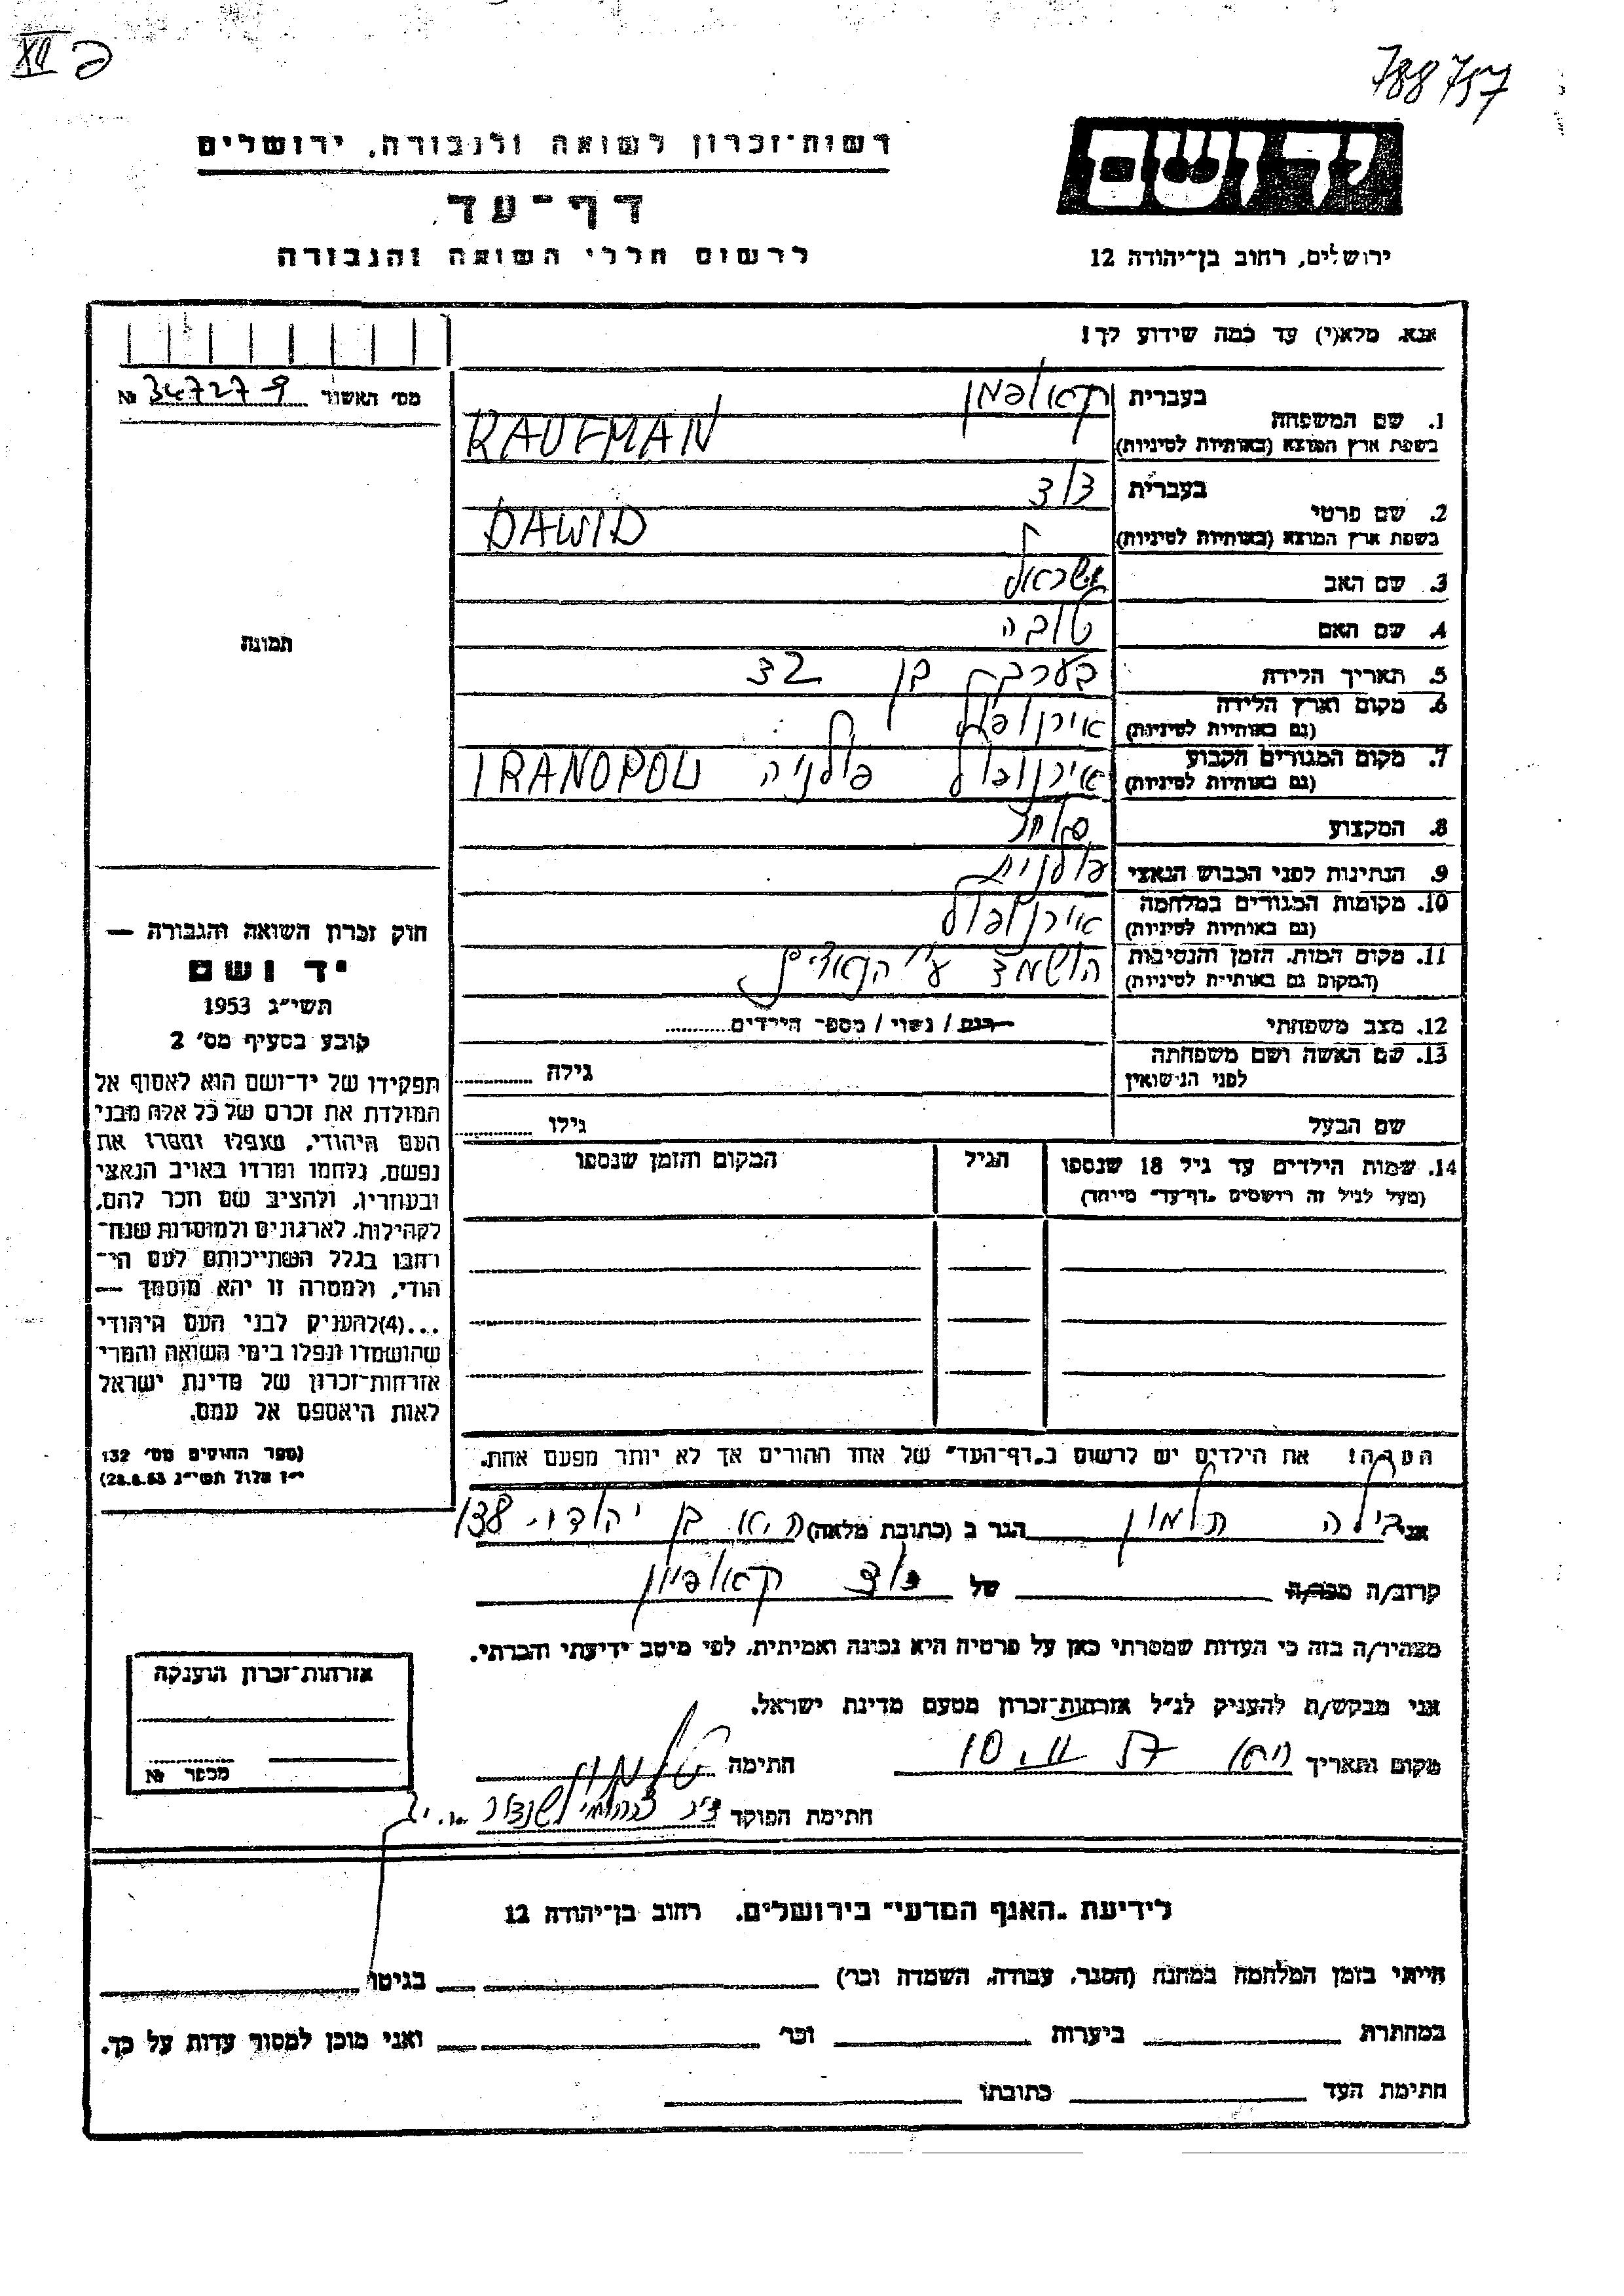 XII ב
788757
יד ושם
רשות־זכרון לשואה ולגבורה, ירושלים
דף־עד
ירושלים, רחוב בן־יהודה 12
לרשום חללי השואה והגבורה
אנא, מלא(י) עד כמה שידוע לך!
מס׳ האשור 347279 №
1. שם המשפחה בעברית קאופמן
בשפת ארץ המוצא (באותיות לטיניות) KAUFMAN
2. שם פרטי בעברית דוד
בשפת ארץ המוצא (באותיות לטיניות) DAWID
3. שם האב ישראל
4. שם האם טובה
5. תאריך הלידה בערך בן 32
6. מקום וארץ הלידה אירנופול
(גם באותיות לטיניות)
7. מקום המגורים הקבוע אירנופול פולניה IRANOPOL
(גם באותיות לטיניות)
8. המקצוע
9. הנתינות לפני הכבוש הנאצי פולנית
10. מקומות המגורים במלחמה אירנופול
(גם באותיות לטיניות)
11. מקום המות, הזמן והנסיבות הושמד ע״י הנאצים
(המקום גם באותיות לטיניות)
12. מצב משפחתי רווק / נשוי / מספר הילדים
13. שם האשה ושם משפחתה גילה
לפני הנישואין
שם הבעל גילו
14. שמות הילדים עד גיל 18 שנספו הגיל המקום והזמן שנספו
(מעל לגיל זה רושמים „דף־עד״ מיוחד)
תמונה
חוק זכרון השואה והגבורה —
יד ושם
תשי״ג 1953
קובע בסעיף מס׳ 2
תפקידו של יד־ושם הוא לאסוף אל
המולדת את זכרם של כל אלה מבני
העם היהודי, שנפלו ומסרו את
נפשם, נלחמו ומרדו באויב הנאצי
ובעוזריו, ולהציב שם וזכר להם,
לקהילות, לארגונים ולמוסדות שנח־
רבו בגלל השתייכותם לעם הי־
הודי, ולמטרה זו יהא מוסמך —
...(4) להעניק לבני העם היהודי
שהושמדו ונפלו בימי השואה והמרי
אזרחות־זכרון של מדינת ישראל
לאות היאספם אל עמם.
(ספר החוקים מס׳ 132
י״ז אלול תשי״ג 28.8.53)
הערה! את הילדים יש לרשום ב„דף־העד״ של אחד ההורים אך לא יותר מפעם אחת.
אני בילה תלמון הגר ב (כתובת מלאה) ת״א בן יהודה 138
קרוב/ה מכר/ה של דוד קאופמן
מצהיר/ה בזה כי העדות שמסרתי כאן על פרטיה היא נכונה ואמיתית, לפי מיטב ידיעתי והכרתי.
אני מבקש/ת להעניק לנ״ל אזרחות־זכרון מטעם מדינת ישראל.
מקום ותאריך 10.11.57 חתימה תלמון
חתימת הפוקד
אזרחות־זכרון הוענקה
מספר №
לידיעת „האגף המדעי״ בירושלים, רחוב בן־יהודה 12
הייתי בזמן המלחמה במחנה (הסגר, עבודה, השמדה וכו׳) בגיטו
במחתרת ביערות וכו׳ ואני מוכן למסור עדות על כך.
חתימת העד כתובתו